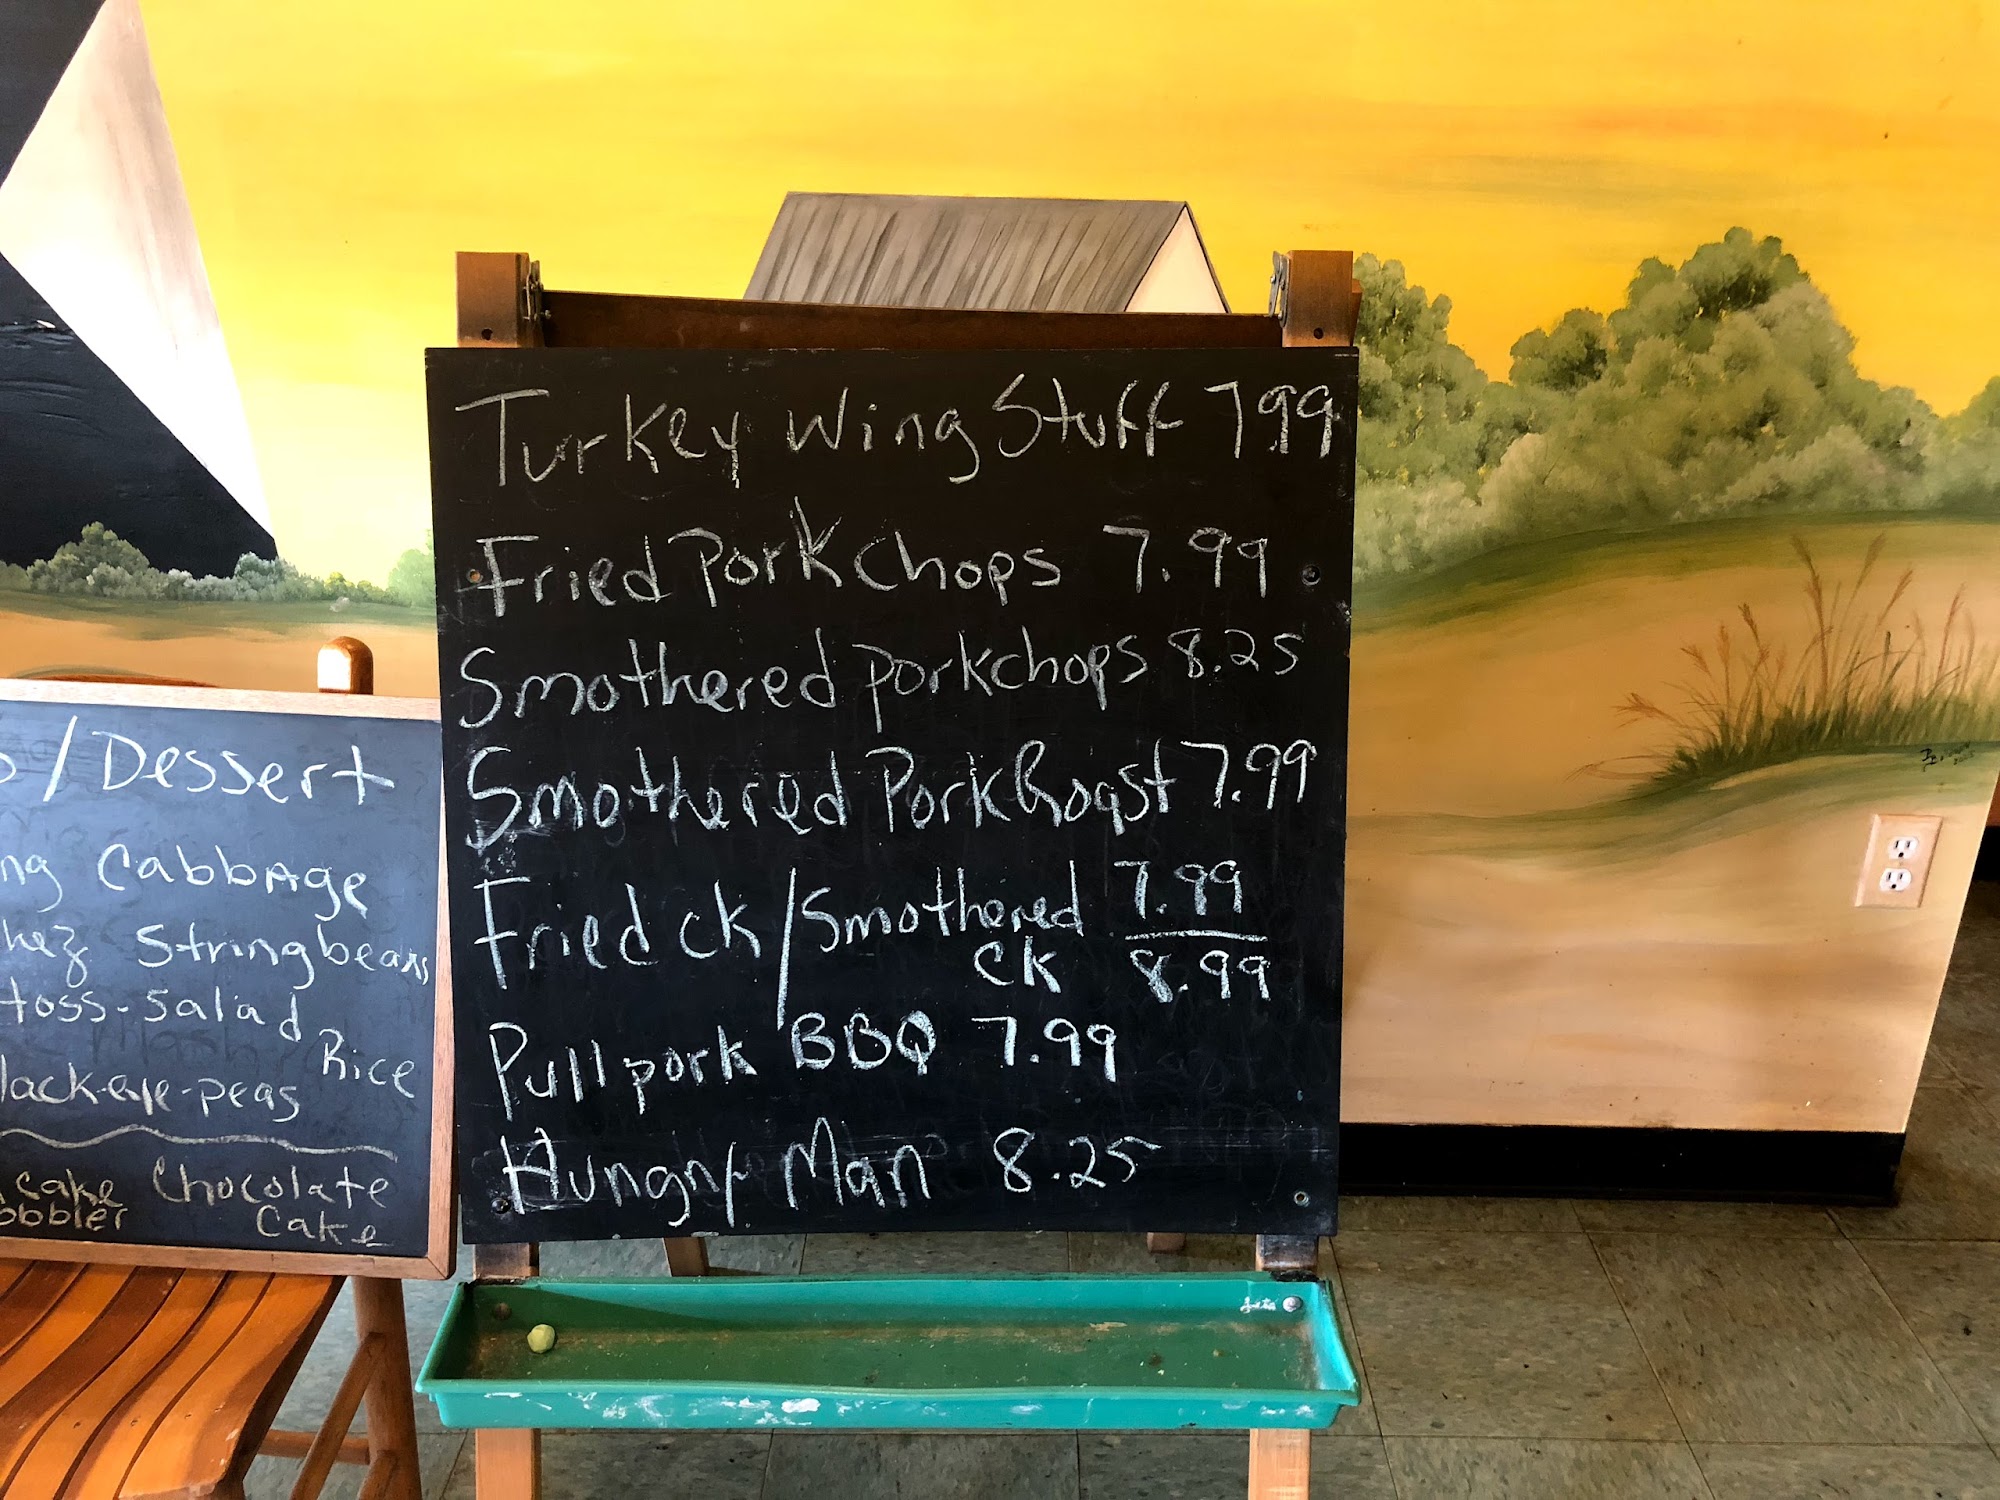 Turkey Wing Stuff 7 99
Fried Pork Chops 7.99
Smothered porkchops 8.25
Smothered Pork Roast 7.99
Fried ck / Smothered 7.99
ck 8.99
Pull pork BBQ 7.99
Hungry Man 8.25
/Dessert
Cabbage
Stringbeans
toss-salad
Rice
lack-eye-peas
cake Chocolate
obbler Cake